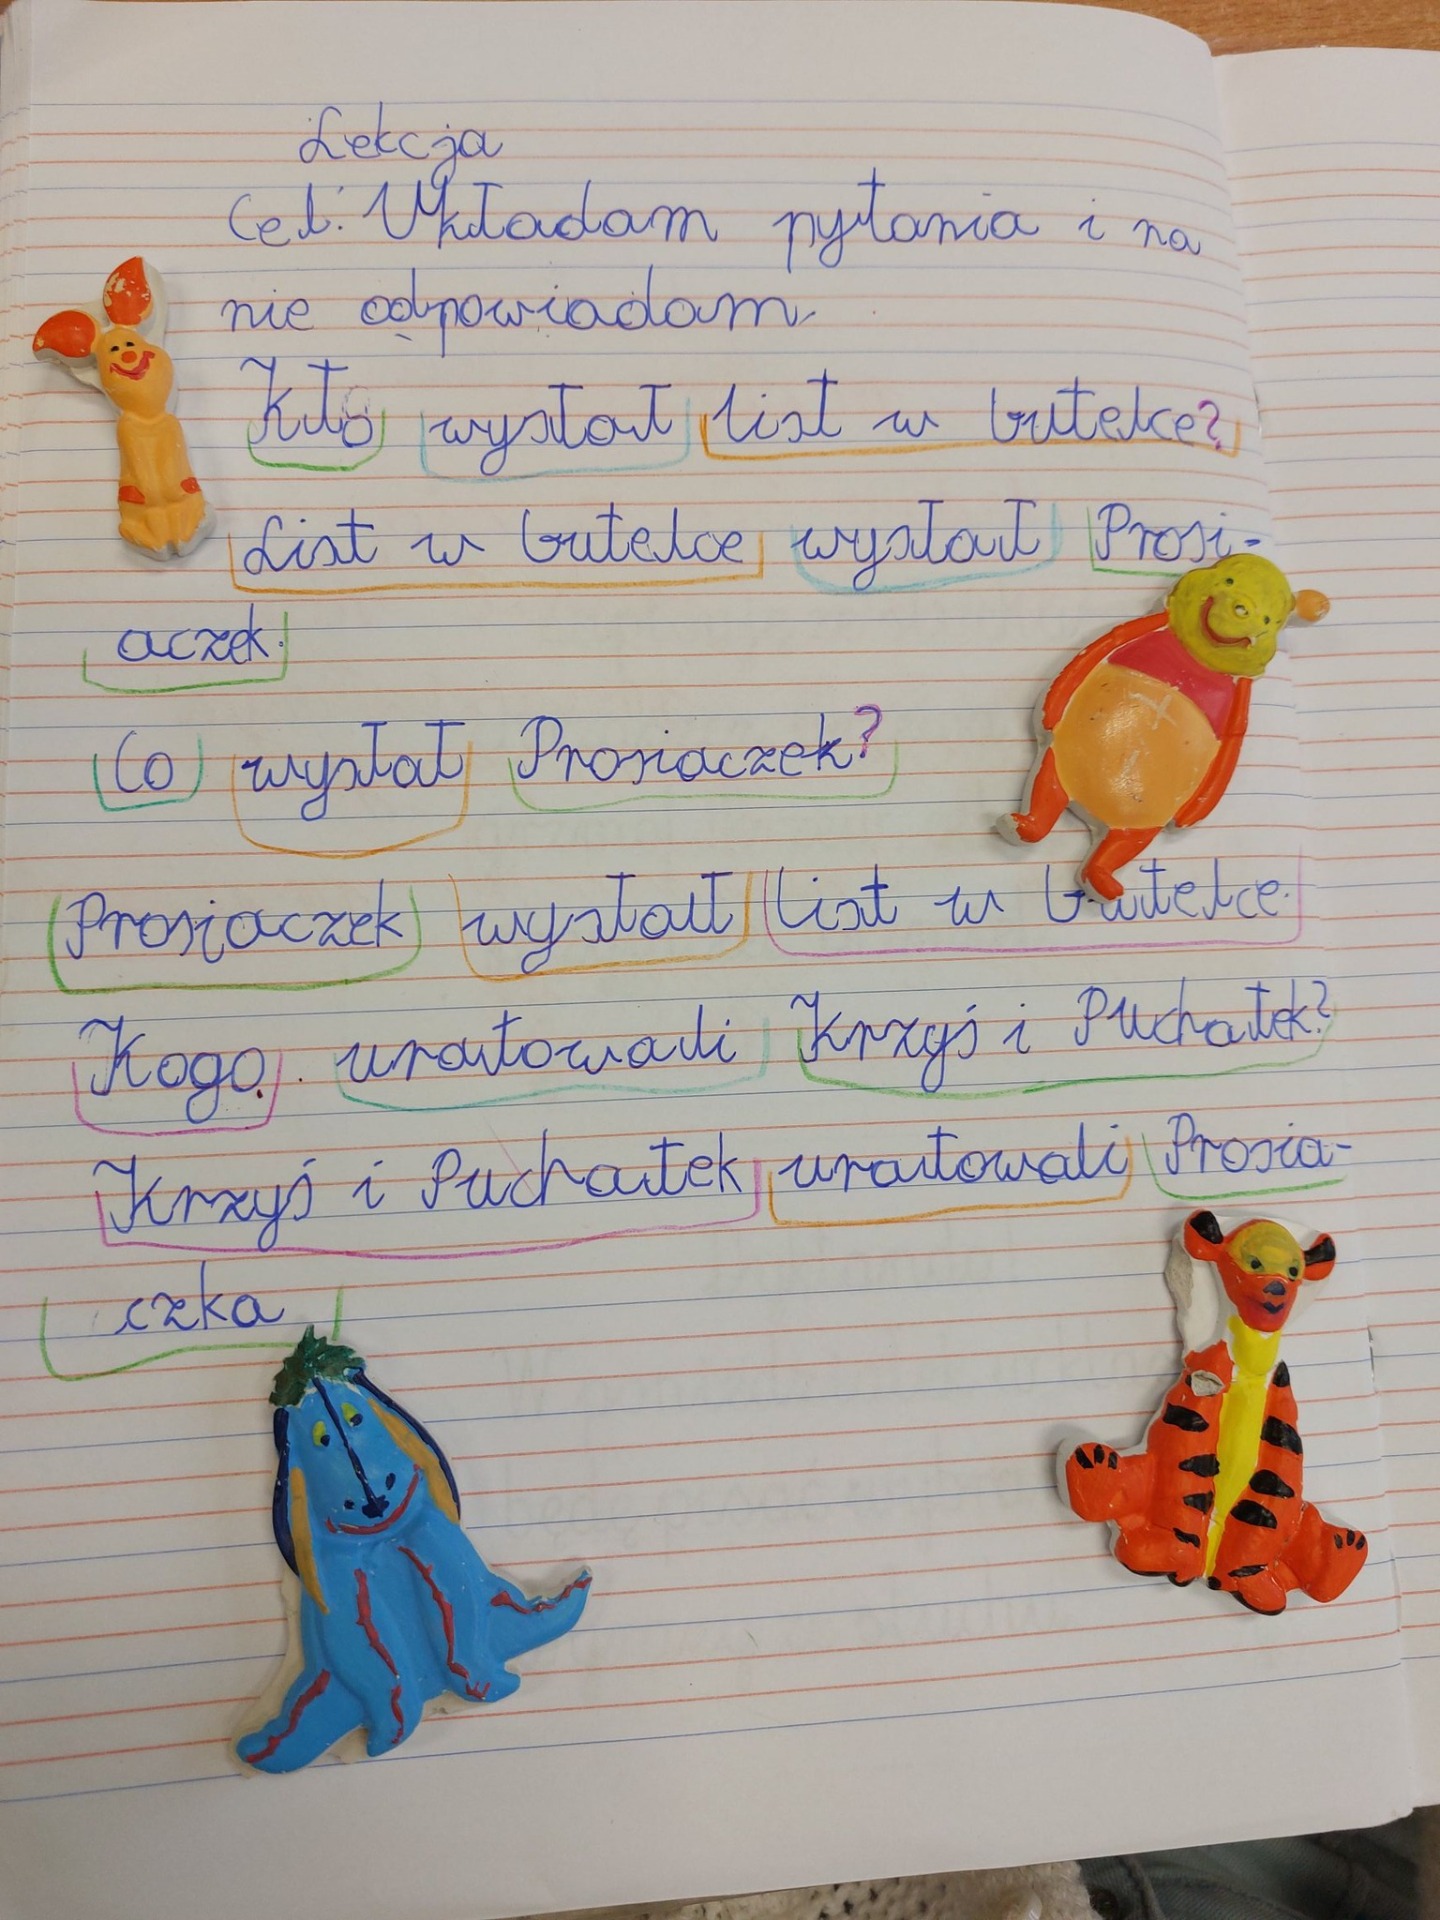 Lekcja
Cel: Układam pytania i na
nie odpowiadam.
Kto wysłał list w butelce?
List w butelce wysłał Prosi-
aczek.
Co wysłał Prosiaczek?
Prosiaczek wysłał list w butelce.
Kogo uratowali Krzyś i Puchatek?
Krzyś i Puchatek uratowali Prosia-
czka